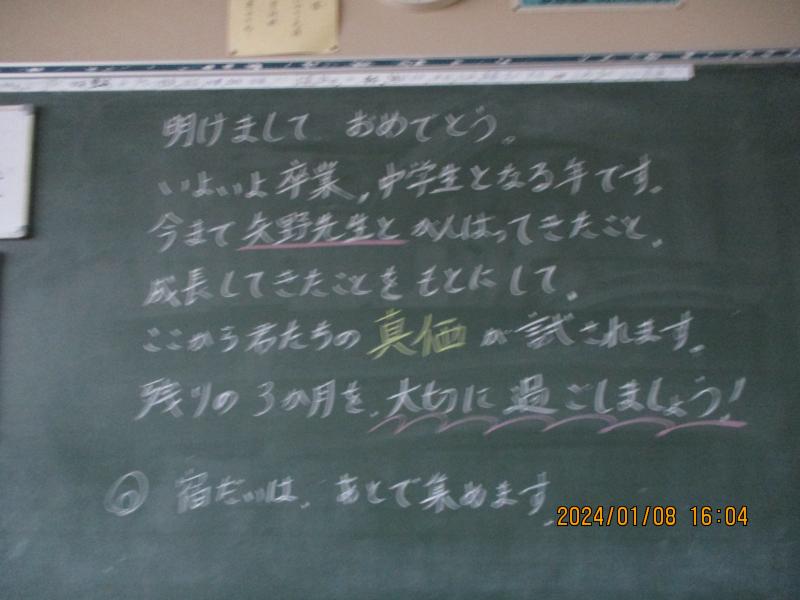 明けまして おめでとう。
いよいよ卒業,中学生となる年です。
今まで矢野先生とがんばってきたこと。
成長してきたことをもとにして。
ここから君たちの真価が試されます。
残りの3か月を,大切に過ごしましょう!
◎ 宿だいは,あとで集めます。
2024/01/08 16:04